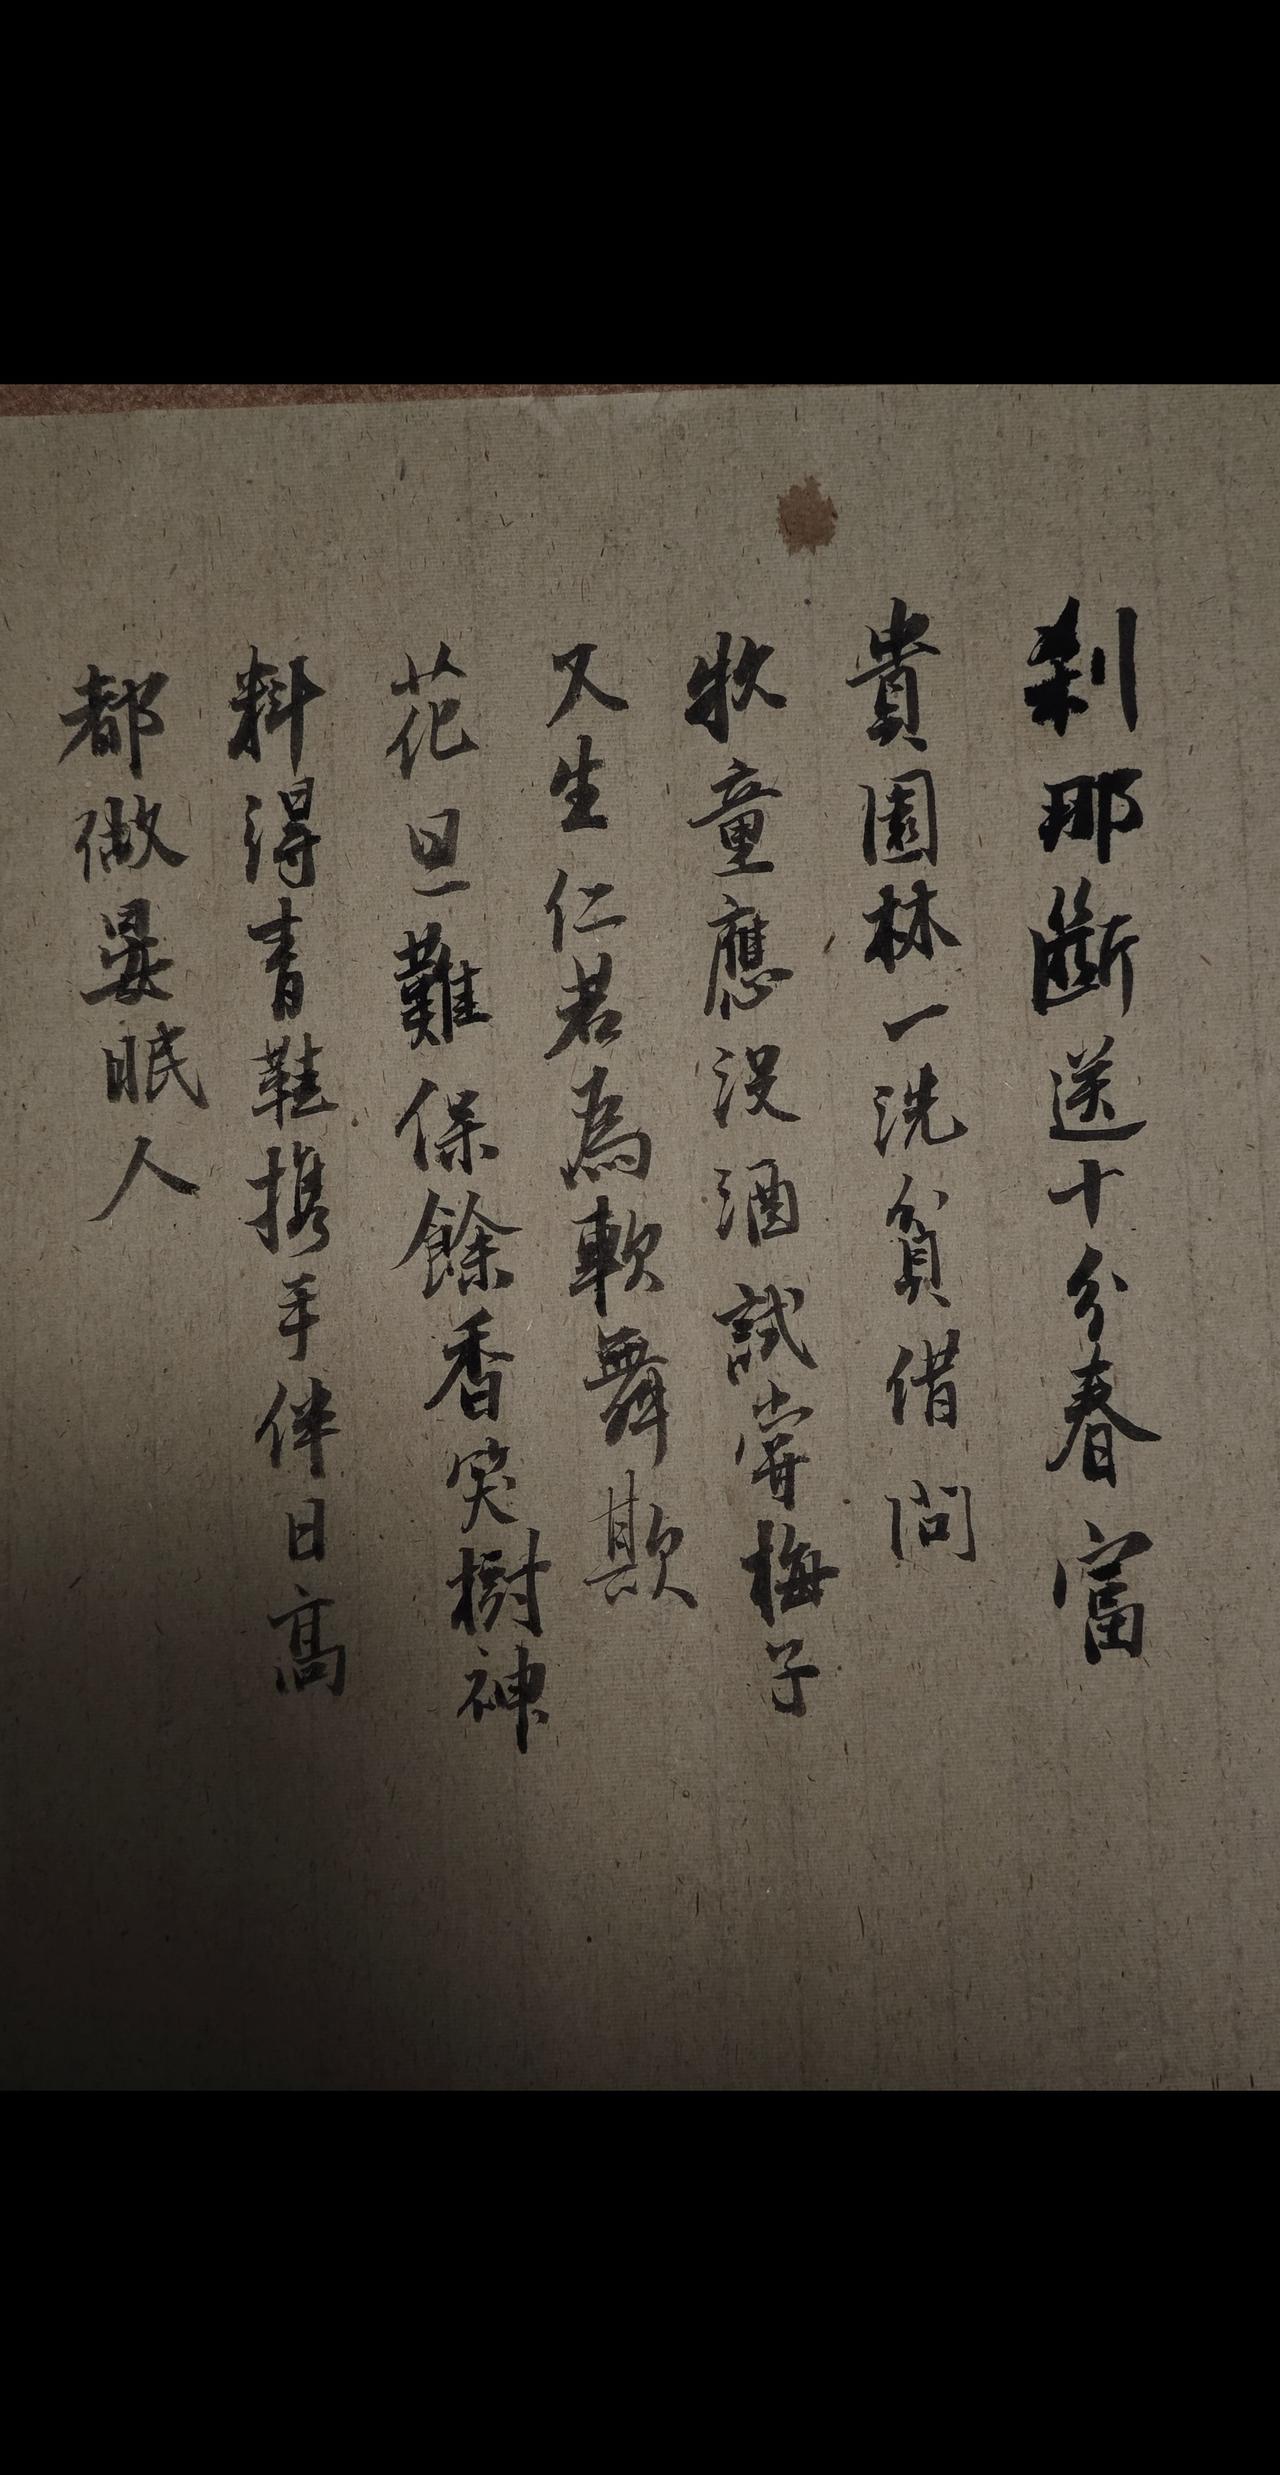 刹那斷送十分春富
貴園林一洗貧借問
牧童應沒酒試嘗梅子
又生仁若為軟舞欺
花旦難保餘香笑樹神
料得青鞋携手伴日高
都做晏眠人